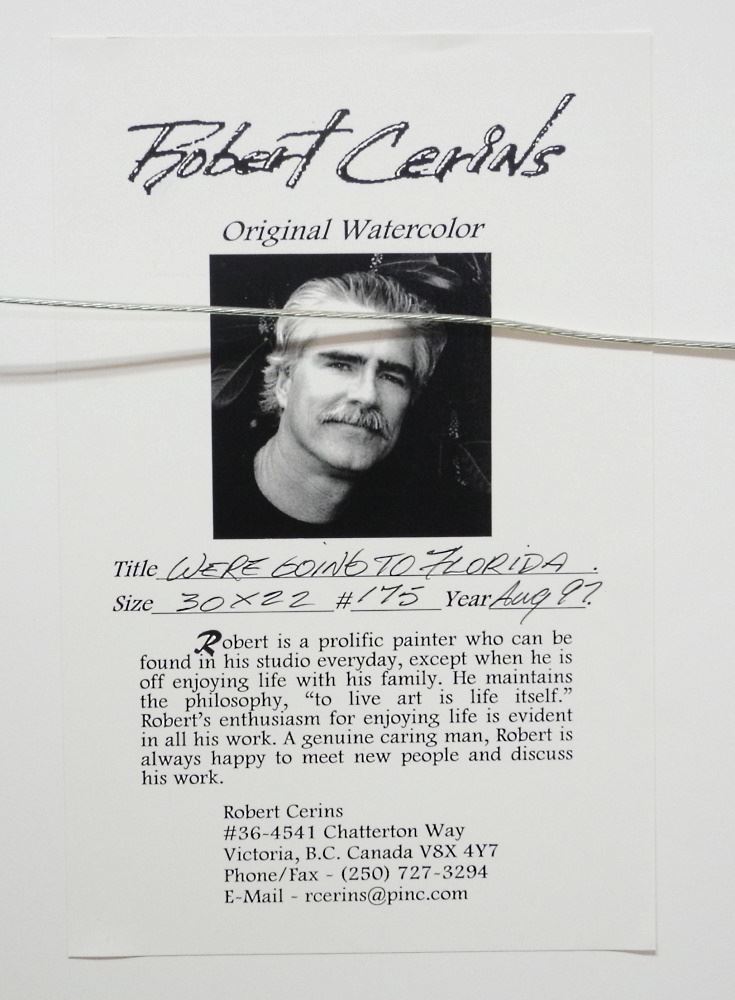 Robert Cerins
Original Watercolor
Title WERE GOING TO FLORIDA .
Size 30 X 22 # 175 Year Aug 97.
Robert is a prolific painter who can be
found in his studio everyday, except when he is
off enjoying life with his family. He maintains
the philosophy, “to live art is life itself.”
Robert’s enthusiasm for enjoying life is evident
in all his work. A genuine caring man, Robert is
always happy to meet new people and discuss
his work.
Robert Cerins
#36-4541 Chatterton Way
Victoria, B.C. Canada V8X 4Y7
Phone/Fax - (250) 727-3294
E-Mail - rcerins@pinc.com